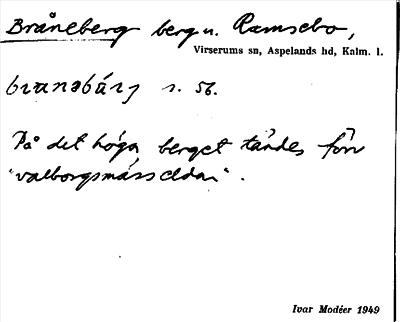 Bråneberg berg u. Ramsebo,
Virserums sn, Aspelands hd, Kalm. l.
s. 56.
På det höga berget tändes förr
"valborgsmässeldar".
Ivar Modéer 1949